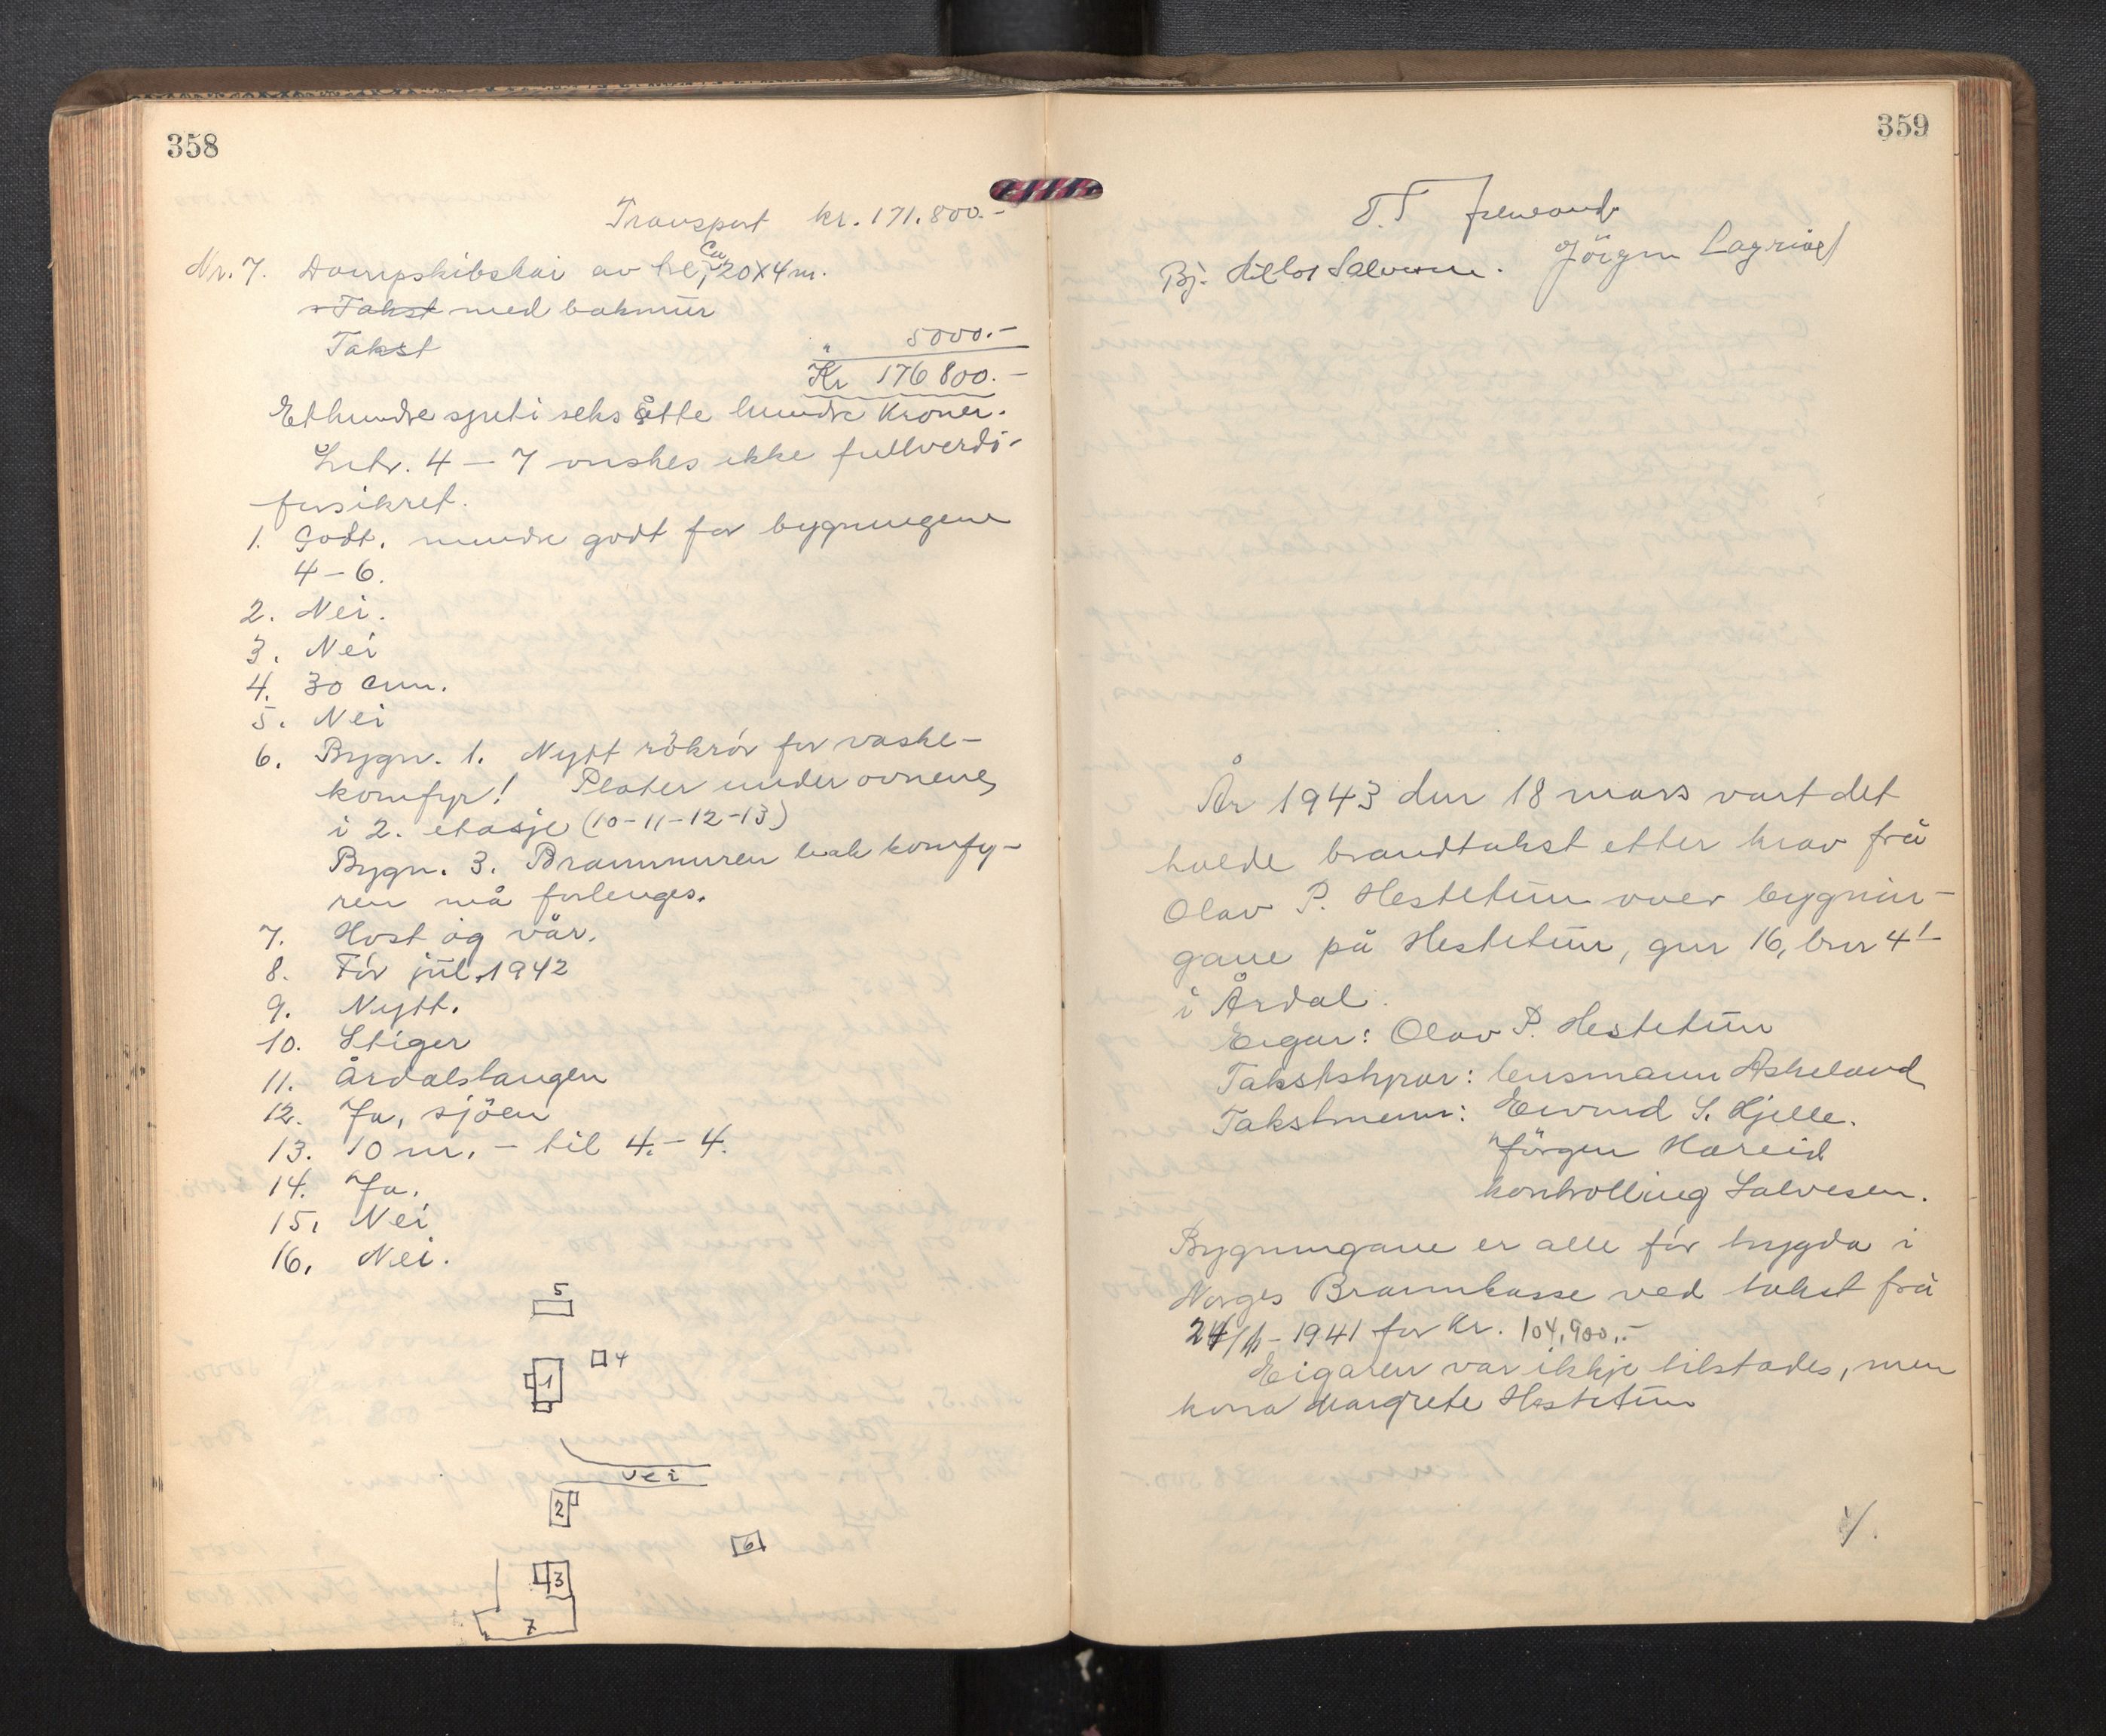 358
Transport kr. 171.800.-
Nr. 7. Dampskibskai av tre, ca. 20x4 m.
Takst med bakmur
Takst " 5000.-
Kr 176 800.-
Ethundre sytti seks åtte hundre Kroner.
Litr. 4 — 7 ønskes ikke fullverdi-
forsikret.
1. Godt. mindre godt for bygningene
4-6.
2. Nei.
3. Nei
4. 30 cm.
5. Nei
6. Bygn. 1. Nytt rökrör for vaske-
komfyr! Plater under ovnene,
i 2. etasje (10-11-12-13)
Bygn. 3. Brannmuren bak komfy-
ren må forlenges.
7. Høst og vår.
8. För jul 1942
9. Nytt.
10. Stiger
11. Årdalstangen
12. Ja, sjöen
13. 10 m. - til 4. - 4.
14. Ja.
15. Nei
16. Nei.
5
4
1
Vei
2
6
3
7
359
Bj. Salvesen. Jörgen
År 1943 den 18 mars vart det
halde brandtakst etter krav frå
Olav P. Hestetun over bygnin-
gane på Hestetun, gnr 16, bnr 4
i Årdal.
Eigar: Olav P. Hestetun
Takststyrar: lensmann Askeland
Takstmenn: Eivind S. Hjelle.
Jörgen Hæreid
kontrolling Salvesen.
Bygningane er alle för trygda i
Norges Brannkasse ved takst frå
1941 for Kr. 104,900,-
Eigaren var ikkje tilstades, men
kona Margrete Hestetun